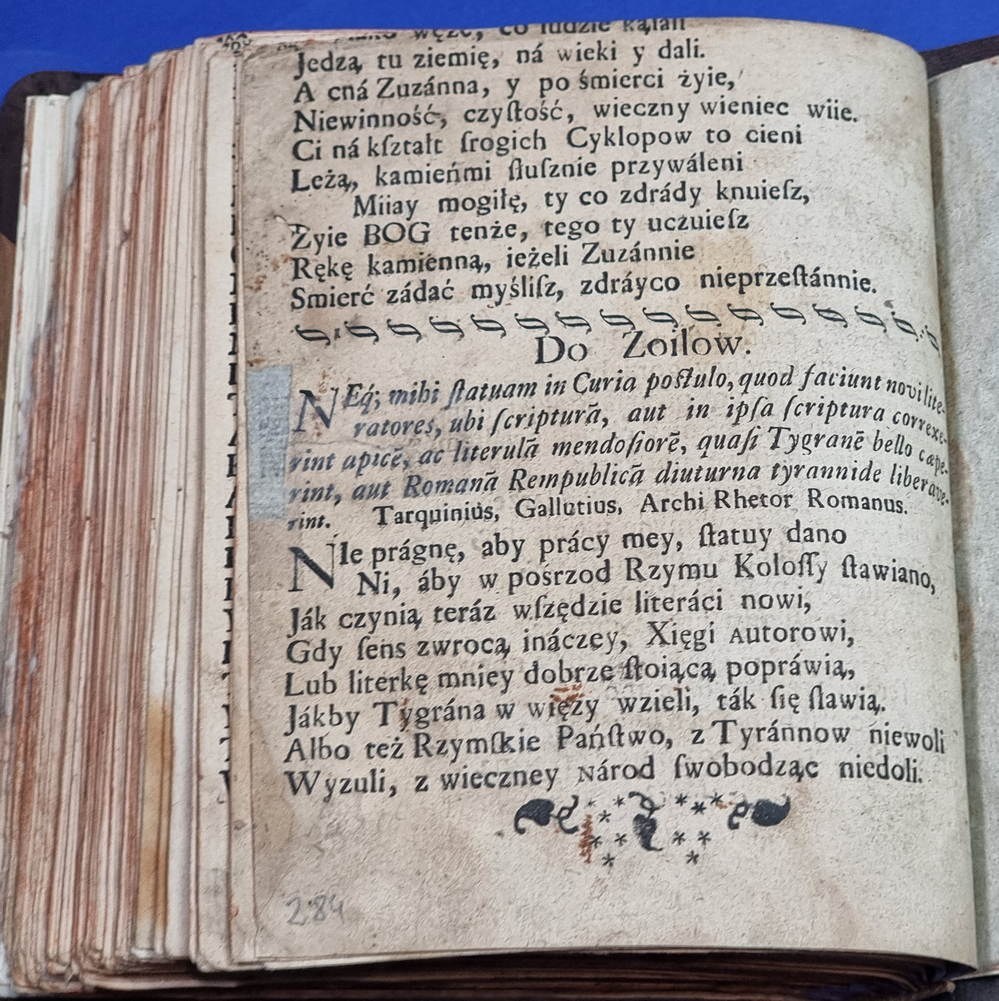 węże, co ludzie kąsali
Jedzą, tu ziemię, ná wieki y dali.
A cná Zuzánna, y po śmierci żyie,
Niewinność, czyſtość, wieczny wieniec wiie.
Ci ná kſztałt ſrogich Cyklopow to cieni
Leżą, kamieńmi ſłuſznie przywáleni
Miiay mogiłę, ty co zdrády knuieſz,
Zyie BOG tenże, tego ty uczuieſz
Rękę kamienną, ieżeli Zuzánnie
Smierć zádać myśliſz, zdráyco nieprzeſtánnie.
Do Zoilow.
NEq́; mihi ſtatuam in Curia poſtulo, quod faciunt novi lite-
ratores, ubi ſcripturā, aut in ipſa ſcriptura correxe-
rint apicē, ac literulā mendoſiorē, quaſi Tygranē bello cæpe-
rint, aut Romanā Rempublicā diuturna tyrannide liberave-
rint. Tarquinius, Gallutius, Archi Rhetor Romanus.
NIe prágnę, aby prácy mey, ſtatuy dano
Ni, áby w pośrzod Rzymu Koloſſy ſtawiano,
Ják czynią teráz wſzędzie literáci nowi,
Gdy ſens zwrocą ináczey, Xięgi Autorowi,
Lub literkę mniey dobrze ſtoiącą popráwią,
Jákby Tygrána w więzy wzieli, ták ſię ſławią.
Albo też Rzymſkie Páńſtwo, z Tyránnow niewoli
Wyzuli, z wieczney Národ ſwobodząc niedoli.
284